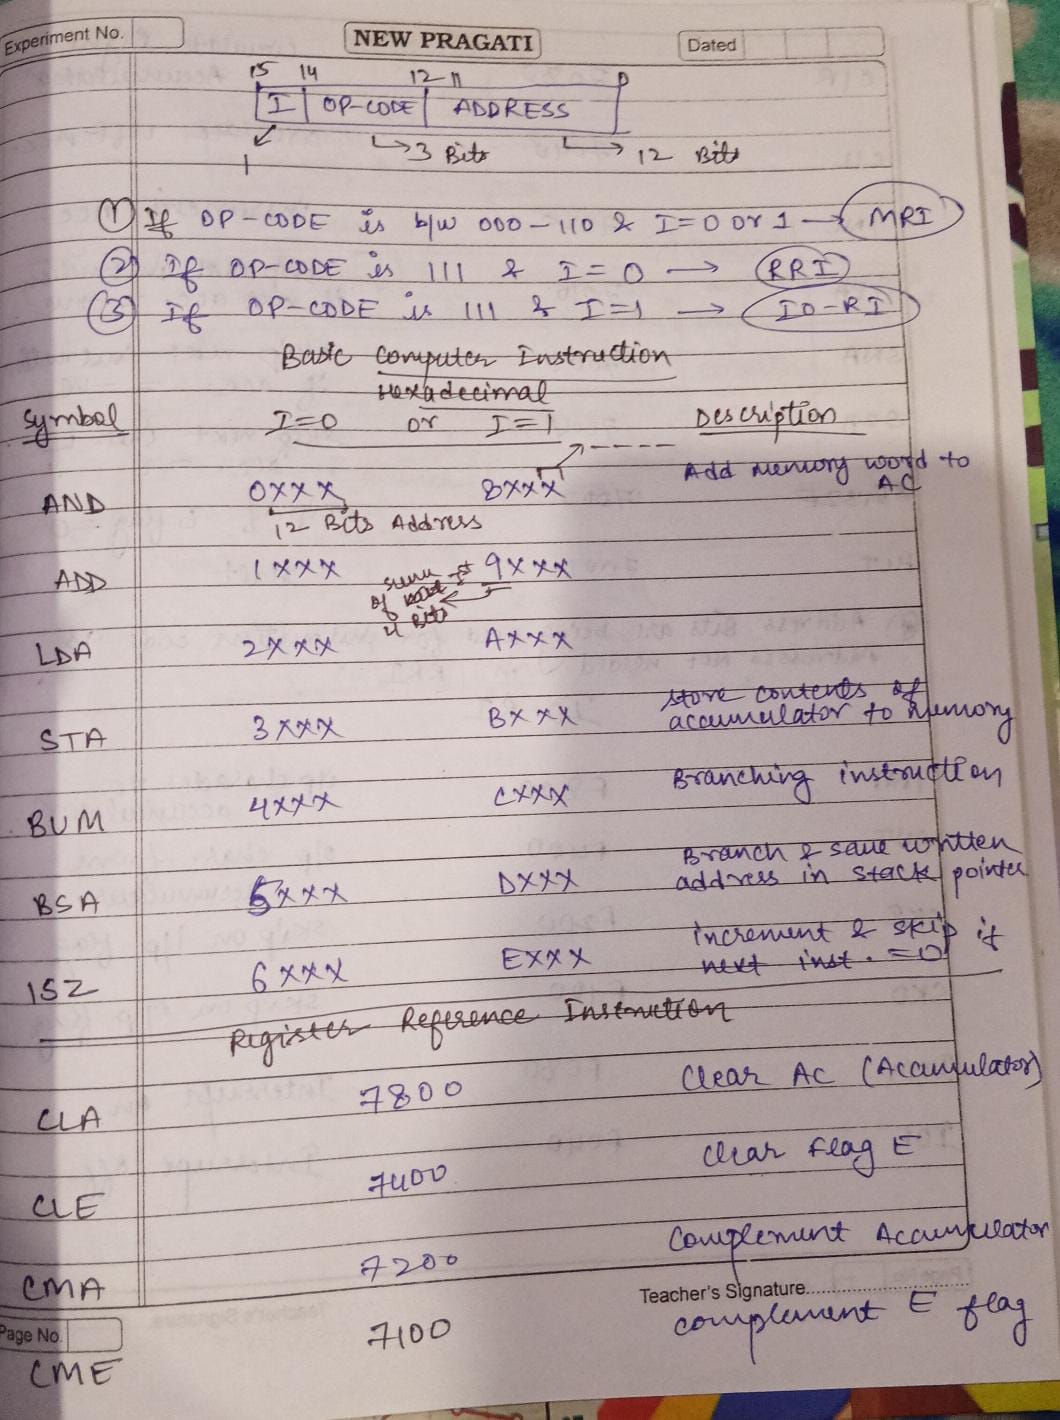 Experiment No.
NEW PRAGATI
Dated
15 14 12 11 0
I OP-CODE ADDRESS
1 3 Bits 12 Bits
① If OP-CODE is b/w 000-110 & I=0 or 1 → MRI
② If OP-CODE is 111 & I=0 → RRI
③ If OP-CODE is 111 & I=1 → IO-RI
Basic Computer Instruction
Hexadecimal
Symbol I=0 or I=1 Description
AND 0XXX 8XXX Add memory word to AC
12 Bits Address
ADD 1XXX 9XXX
of 4 Bits
LDA 2XXX AXXX
STA 3XXX BXXX store contents of
accumulator to Memory
BUM 4XXX CXXX Branching instruction
BSA 5XXX DXXX Branch & save written
address in stack pointer
ISZ 6XXX EXXX increment & skip if
next inst. =0
Register Reference Instruction
CLA 7800 Clear AC (Accumulator)
CLE 7400 Clear Flag E
CMA 7200 Complement Accumulator
Teacher's Signature
Page No.
CME 7100 complement E flag